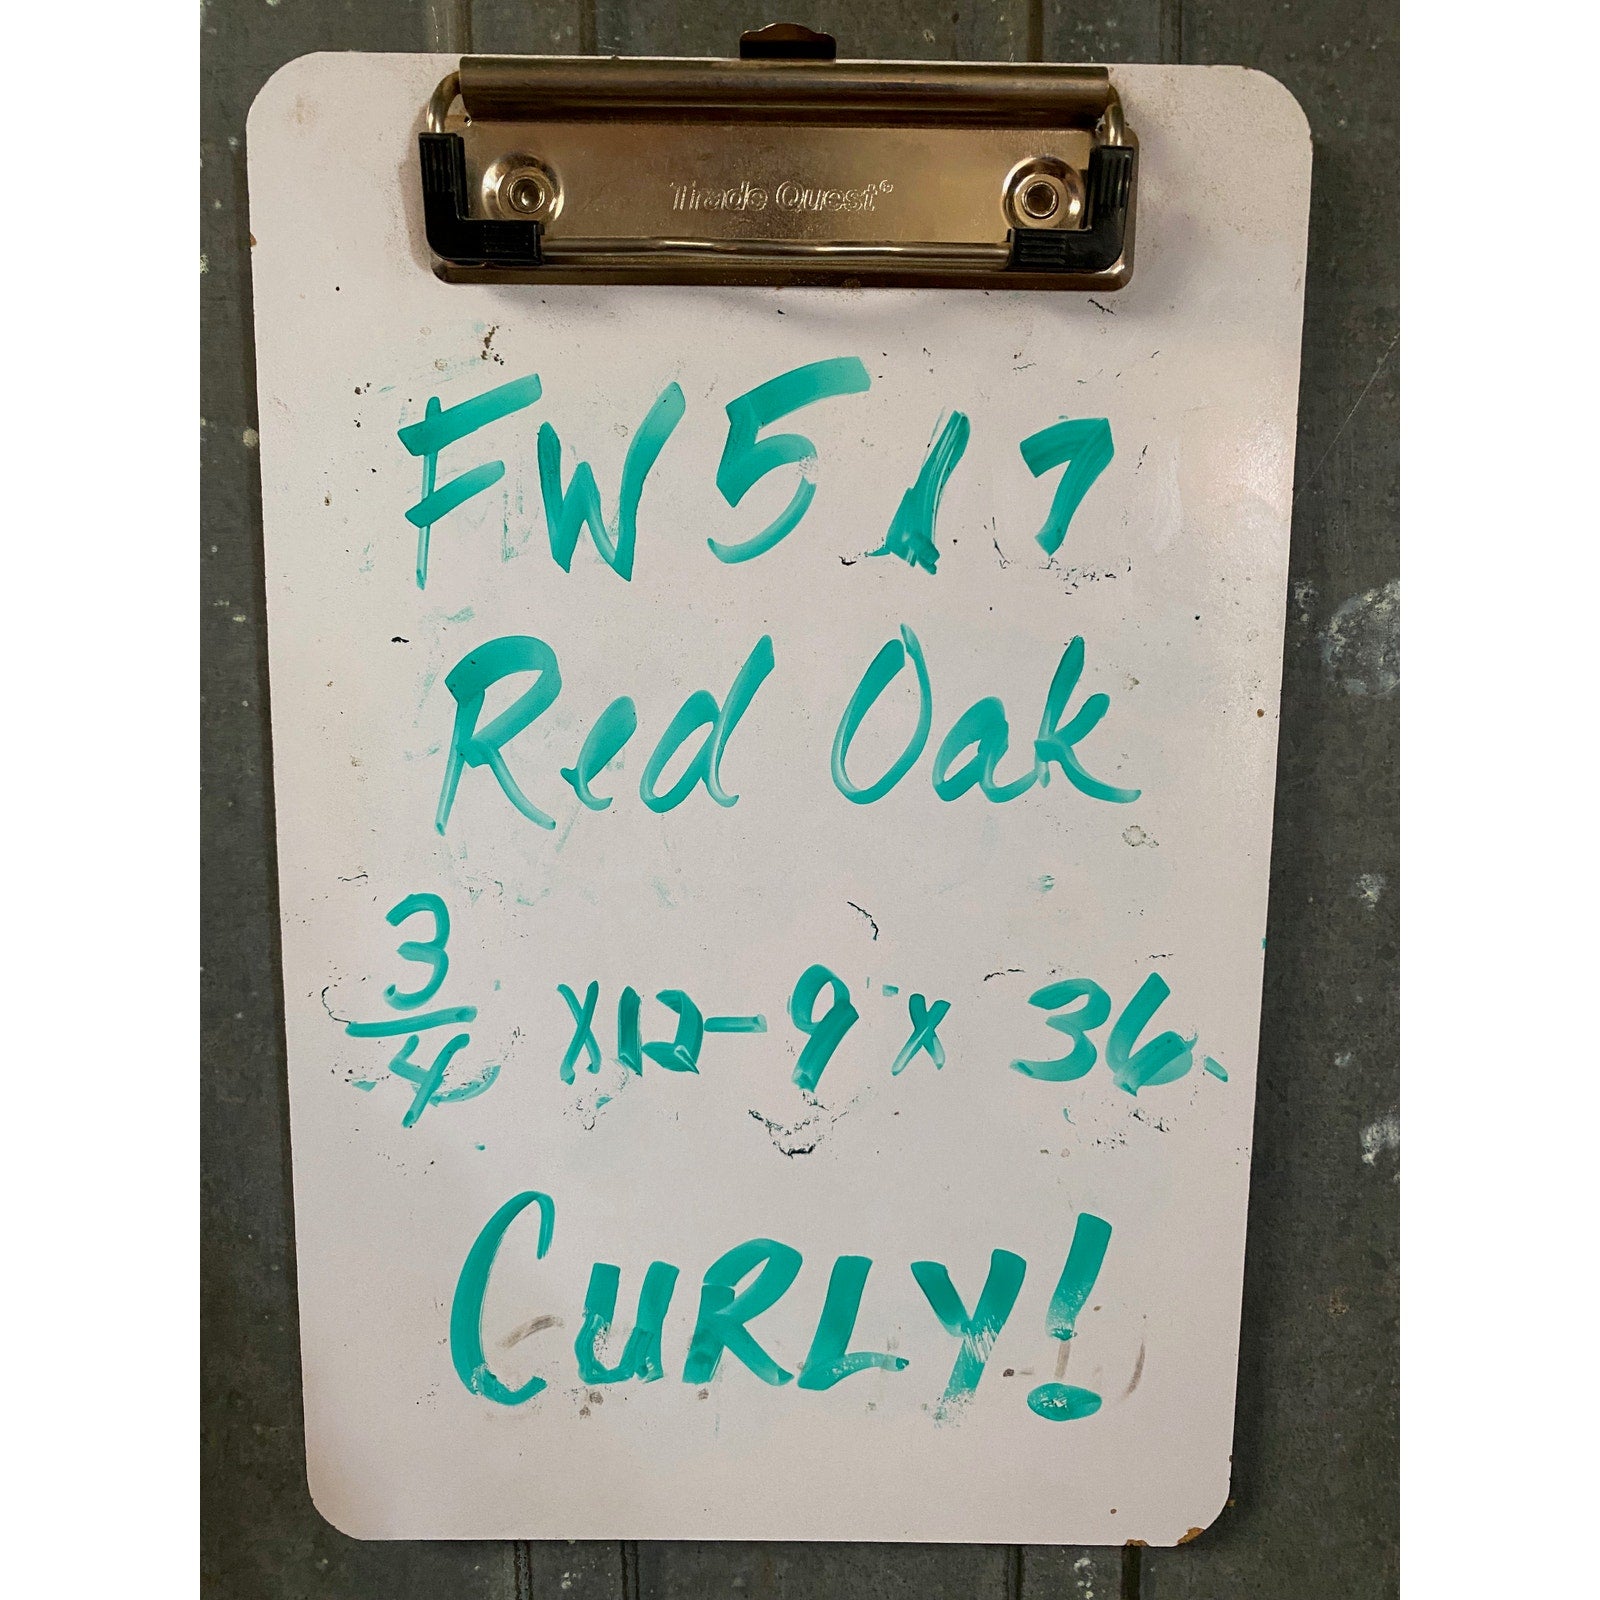 Trade Quest®
FW 517
Red Oak
3/4 x 12-9 x 36
CURLY!